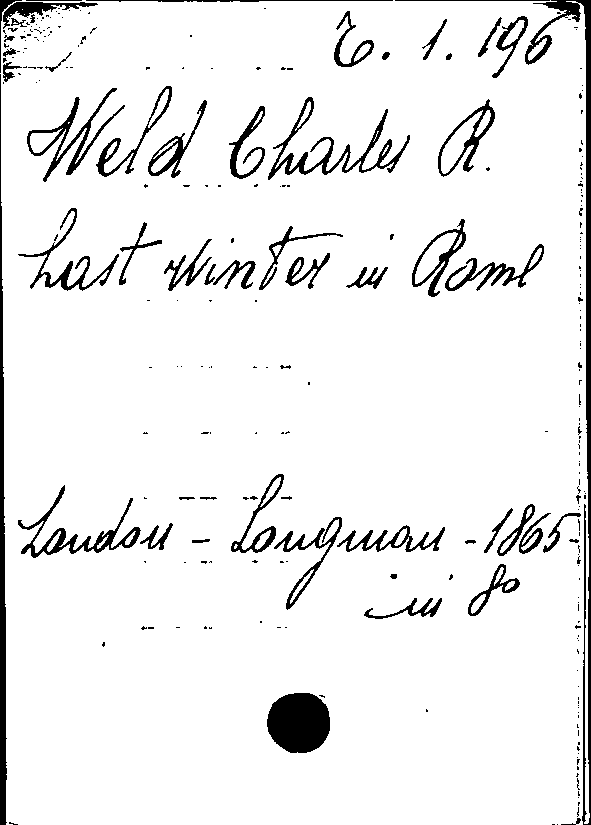 6. 1. 196
Weld Charles R.
Last Winter in Rome
London - Longman - 1865-
in 8°